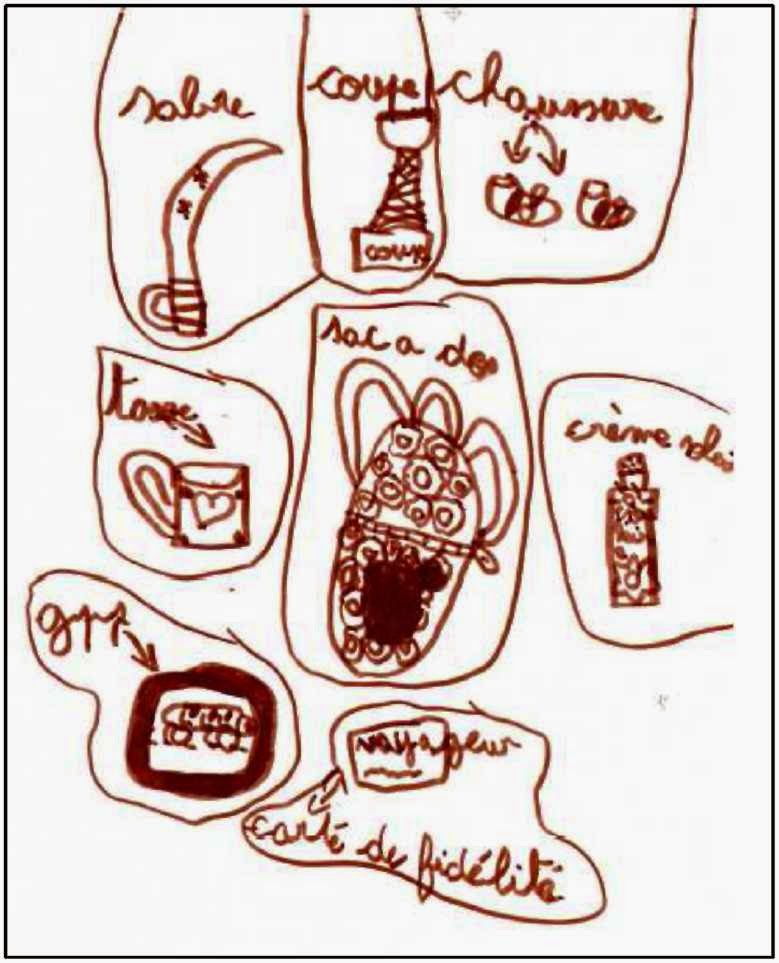 sabre
coupe
chaussure
coupe
sac a dos
tasse
crème
gps
voyageur
carté de fidélité